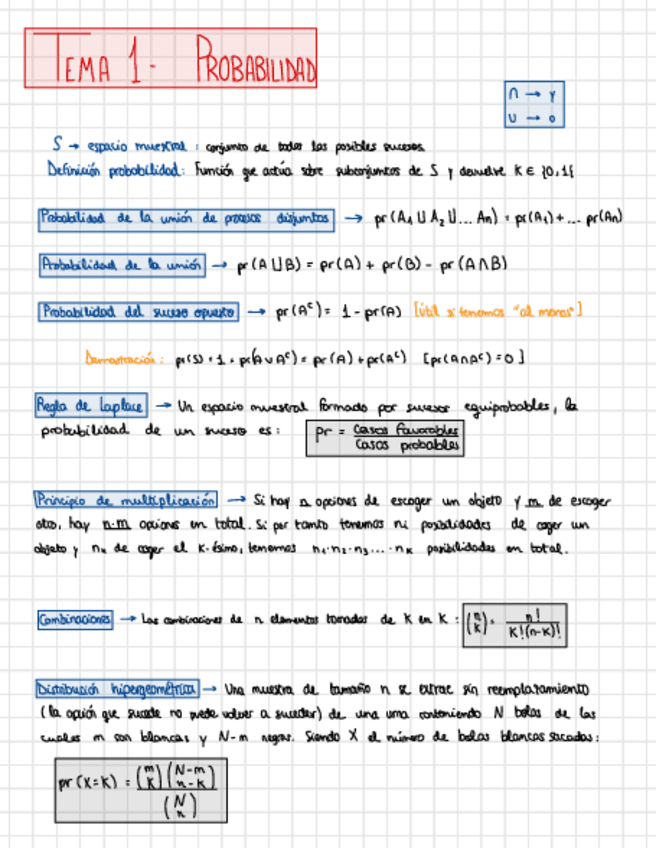 TEMA 1 - PROBABILIDAD
∩ → y
∪ → o
S → espacio muestral : conjunto de todos los posibles sucesos.
Definición probabilidad: Función que actúa sobre subconjuntos de S y devuelve K ∈ {0,1{
Probabilidad de la unión de procesos disjuntos → pr(A₁ ∪ A₂ ∪... An) = pr(A₁)+... pr(An)
Probabilidad de la unión → pr(A∪B) = pr(A) + pr(B) - pr(A∩B)
Probabilidad del suceso opuesto → pr(Aᶜ) = 1 - pr(A) [Útil si tenemos "al menos"]
Demostración : pr(S) = 1 = pr(A∪Aᶜ) = pr(A) + pr(Aᶜ) [pr(A∩Aᶜ) = 0]
Regla de Laplace → Un espacio muestral formado por sucesos equiprobables, la
probabilidad de un suceso es: pr = casos favorables / casos probables
Principio de multiplicación → Si hay n opciones de escoger un objeto y m de escoger
otro, hay n·m opciones en total. Si por tanto tenemos ni posibilidades de coger un
objeto y nₖ de coger el K-ésimo, tenemos n₁·n₂·n₃...·nₖ posibilidades en total.
Combinaciones → Las combinaciones de n elementos tomados de K en K : (n K) = n! / K!(n-K)!
Distribución hipergeométrica → Una muestra de tamaño n se extrae sin reemplazamiento
(la opción que sucede no puede volver a suceder) de una urna conteniendo N bolas de las
cuales m son blancas y N-m negras. Siendo X el número de bolas blancas sacadas:
pr(X=K) = (m K)(N-m n-K) / (N n)